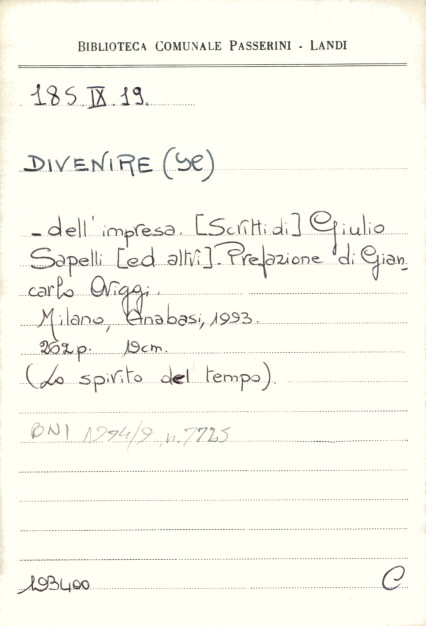 BIBLIOTECA COMUNALE PASSERINI - LANDI
185 IX 19.
DIVENIRE (Il)
- dell'impresa. [Scritti di] Giulio
Sapelli [ed altri]. Prefazione di Gian
carlo Origgi.
Milano, Anabasi, 1993.
202 p. 19cm.
(Lo spirito del tempo).
BNI 1994/9 n. 7725
193400
C